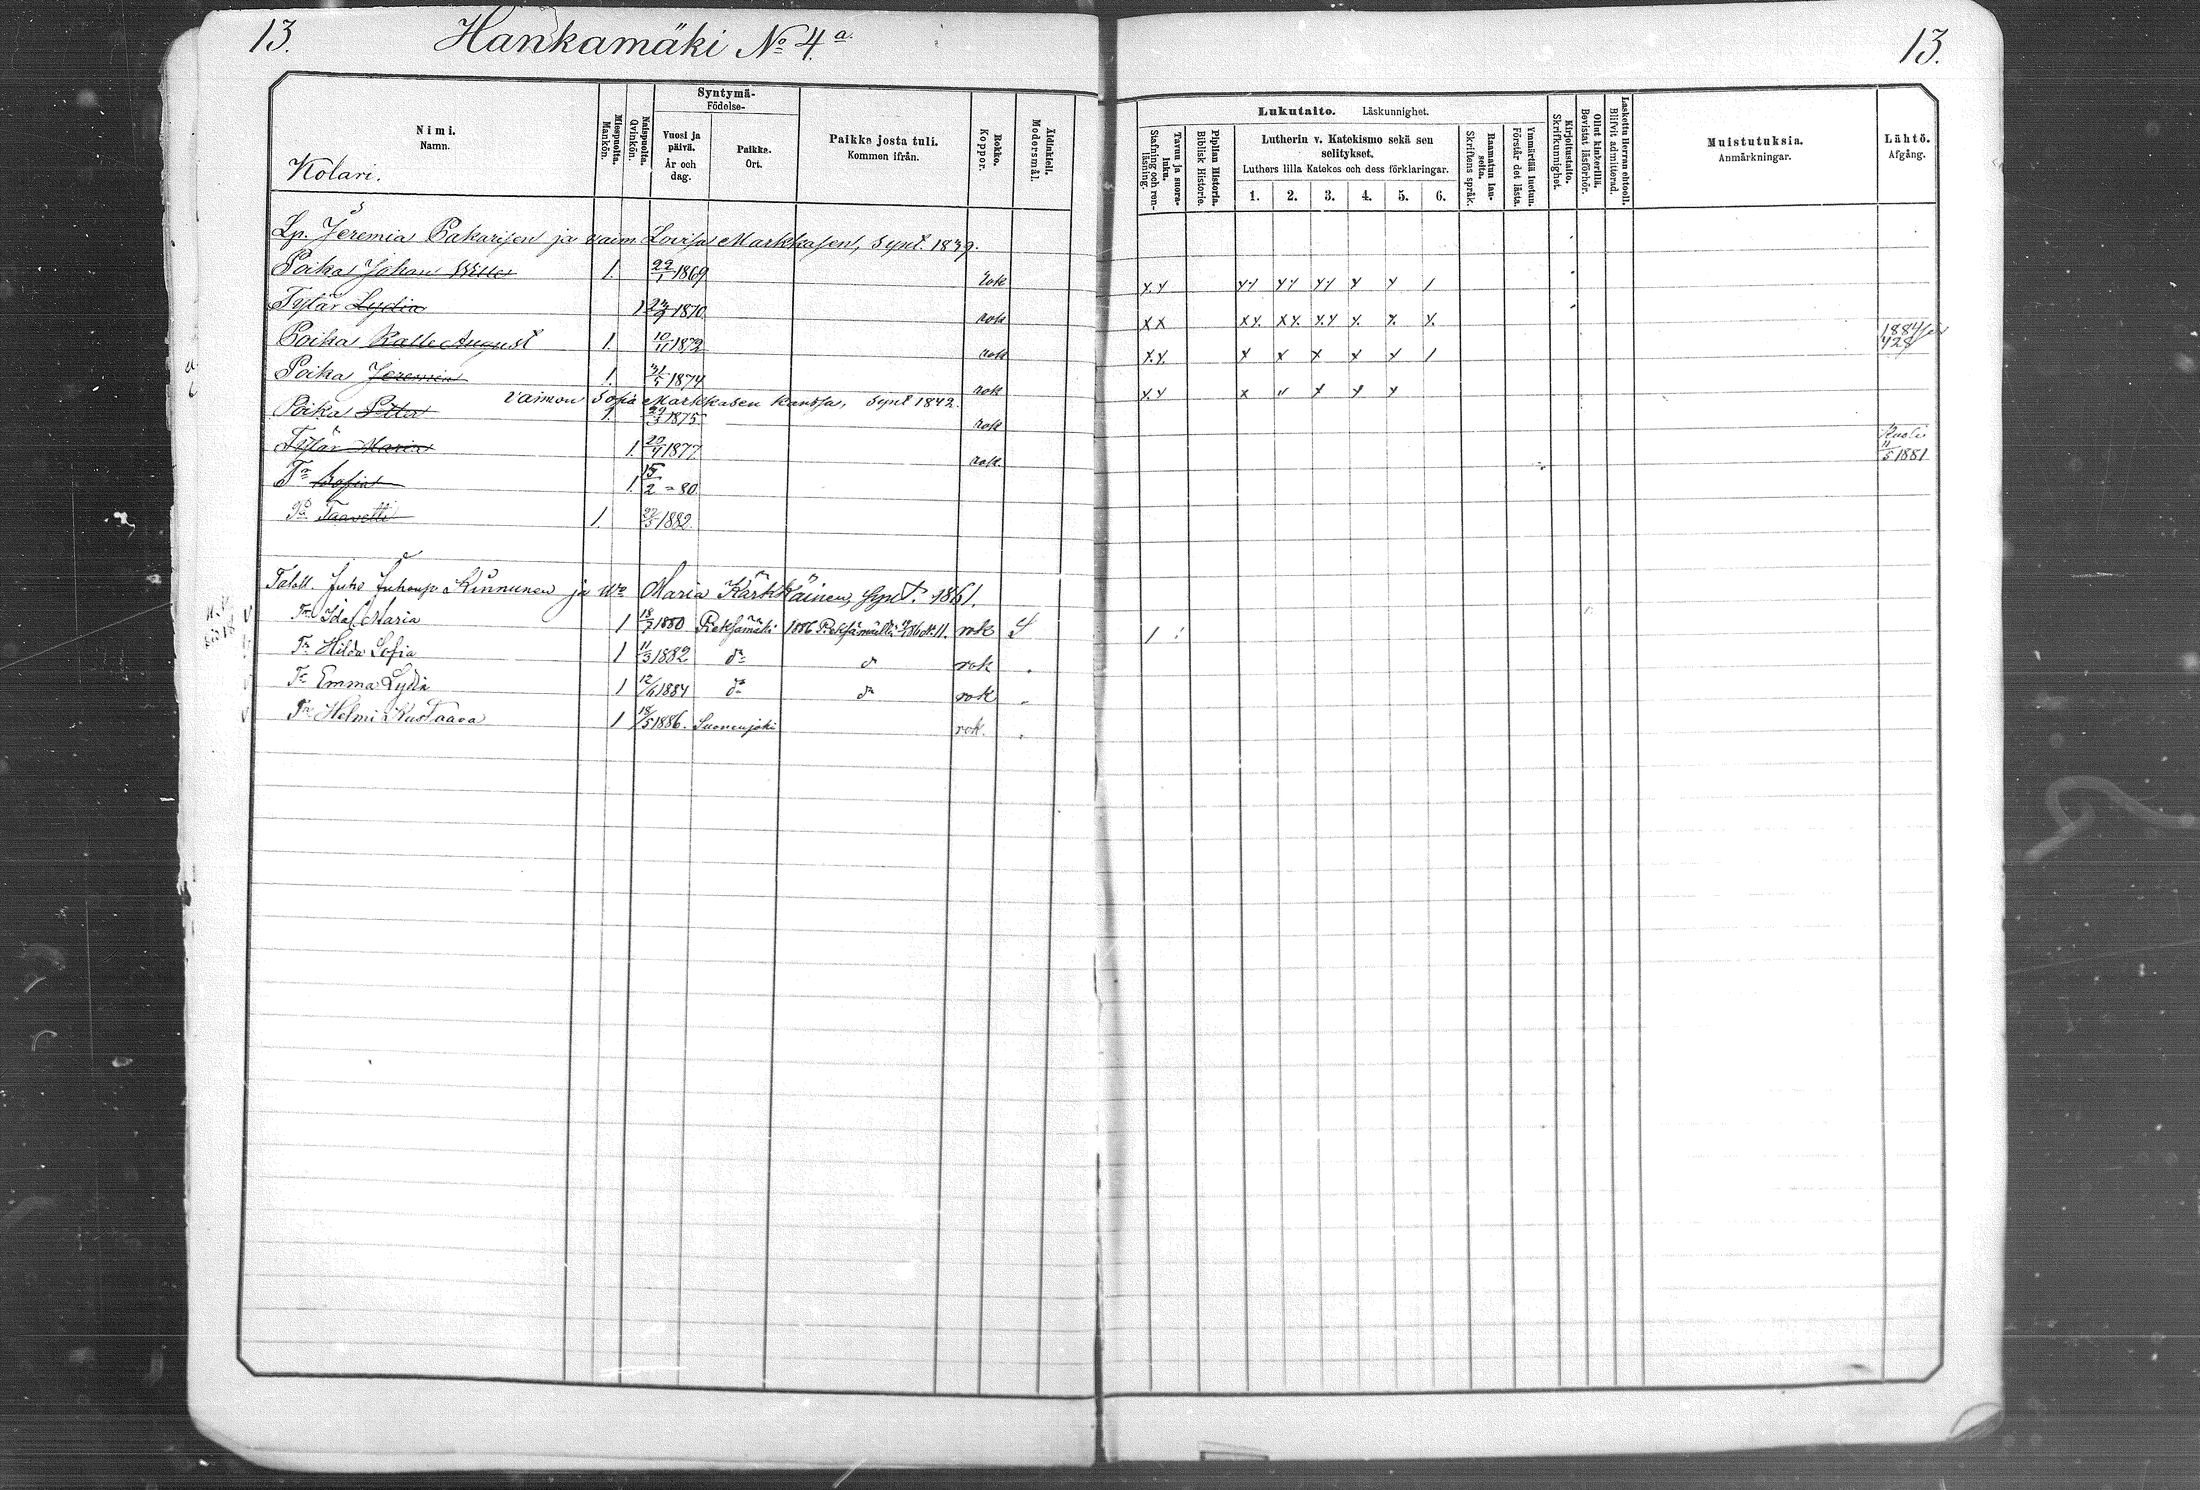 13. Hankamäki No 4.a. 13.
Syntymä-
Födelse-
Nimi.
Namn.
Miespuolta.
Mankön.
Naispuolta.
Qvinkön.
Vuosi ja päivä.
År och dag.
Paikka.
Ort.
Paikka josta tuli.
Kommen ifrån.
Rokko.
Koppor.
Äidinkieli.
Modersmål.
Lukutaito. Läskunnighet.
Tavuu ja suora-luku.
Stafning och ren-läsning.
Piplian Historia.
Biblisk Historie.
Lutherin v. Katekismo sekä sen selitykset.
Luthers lilla Katekes och dess förklaringar.
1. 2. 3. 4. 5. 6.
Raamatun lau-seita.
Skriftens språk.
Ymmärtää luetun.
Förstår det lästa.
Kirjoitustaito.
Skriftkunnighet.
Ollut kinkerillä.
Bevistat läsförhör.
Laskettu Herran ehtoell.
Blifvit admitterad.
Muistutuksia.
Anmärkningar.
Lähtö.
Afgång.
Kolari.
Lp. Jeremia Pakarisen ja vaim Lovisa Markkasen, synt. 1839.
Poika Johan 1. 22/1 1869 rok x.x
Tytär Lydia 1 1870 rok xx xx. xx. x.x x. x. x.
Poika Kalle August 1. 10/11 1872 rok x.x x x x x x 1 1884
Poika Jeremia 1. 31/5 1874 rok x.x x " x x x
vaimon Sofia Markkasen kanssa, synt 1842.
Poika 1. 1875 rok
Tytär Maria 1. 1877 rok. Kuoli 11/5 1881
Tr Sofia 1. 15/2 - 80
Pa Taavetti 1. 1882
Taloll. Juho Kinnunen ja Wo Maria Kärkkäinen, synt. 1861.
Tr Ida Maria 1 18/7 1880 Pieksämäki 1886 rok S 1
Tr Hilda Sofia 1 11/3 1882 do do rok "
Tr Emma Lydia 1 12/6 1884 do do rok "
Tr Helmi Kustaava 1 18/5 1886. Suonenjoki rok. "